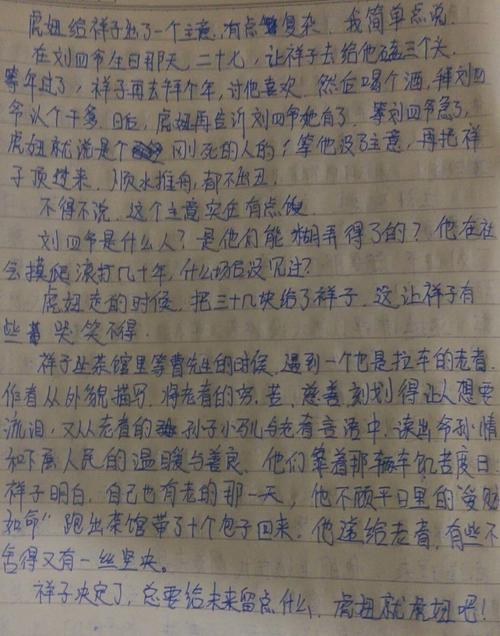 虎妞给祥子出了一个主意,有点复杂,我简单点说.
在刘四爷生日那天,二十七,让祥子去给他磕三个头.
等年过了,祥子再去拜个年,讨他喜欢.然后喝个酒,拜刘四
爷认个干爹.日后,虎妞再告诉刘四爷她有了.等刘四爷急了,
虎妞就说是个刚死的人的,等他没了主意,再把祥
子顶过来.顺水推舟,都不出丑.
不得不说,这个主意实在有点馊.
刘四爷是什么人?是他们能糊弄得了的?他在社
会摸爬滚打几十年,什么场合没见过?
虎妞走的时候,把三十几块给了祥子.这让祥子有
些哭笑不得.
祥子坐茶馆里等曹先生的时候,遇到一个也是拉车的老者.
作者从外貌描写,将老者的穷、苦、慈善刻划得让人想要
流泪,又从老者的孙子小马儿与老者言语中,读出爷孙情
和下层人民的温暖与善良.他们靠着那辆车饥苦度日.
祥子明白,自己也有老的那一天,他不顾平日里的"爱财
如命"跑出茶馆带了十个包子回来.他递给老者,有些不
舍得又有一丝坚决。
祥子决定了,总要给未来留点什么,虎妞就虎妞吧!